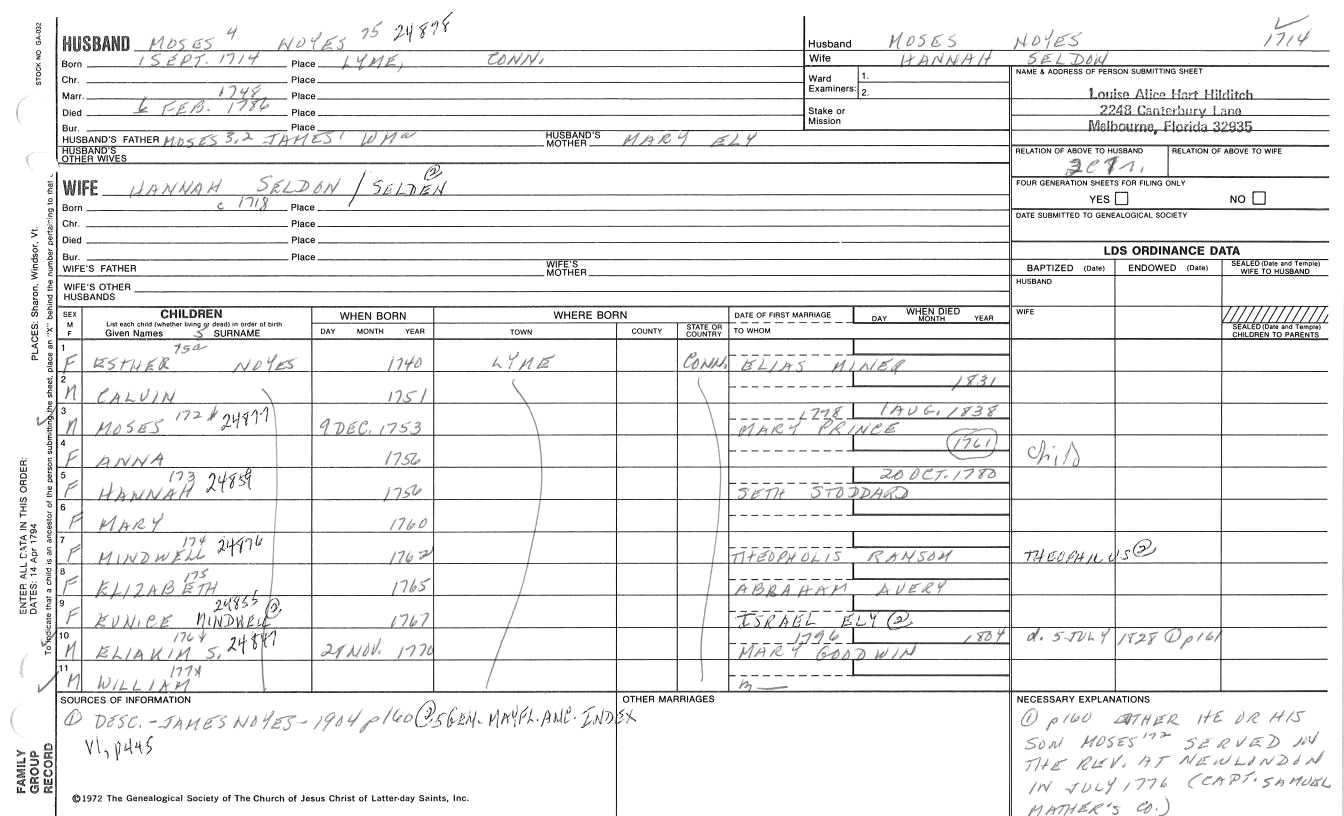 HUSBAND MOSES 4 NOYES 75 24878
Born 1 SEPT. 1714 Place LYME, CONN.
Chr. Place
Marr. 1748 Place
Died 6 FEB. 1786 Place
Bur. Place
HUSBAND'S FATHER MOSES 3,2 JAMES 1 WM a HUSBAND'S MOTHER MARY ELY
HUSBAND'S OTHER WIVES
Husband MOSES NOYES 1714
Wife HANNAH SELDON
Ward Examiners: 1.
2.
Stake or Mission
NAME & ADDRESS OF PERSON SUBMITTING SHEET
Louise Alice Hart Hilditch
2248 Canterbury Lane
Melbourne, Florida 32935
RELATION OF ABOVE TO HUSBAND RELATION OF ABOVE TO WIFE
FOUR GENERATION SHEETS FOR FILING ONLY
YES NO
DATE SUBMITTED TO GENEALOGICAL SOCIETY
WIFE HANNAH SELDON / SELDEN ②
Born c 1718 Place
Chr. Place
Died Place
Bur. Place
WIFE'S FATHER WIFE'S MOTHER
WIFE'S OTHER HUSBANDS
LDS ORDINANCE DATA
BAPTIZED (Date) ENDOWED (Date) SEALED (Date and Temple) WIFE TO HUSBAND
HUSBAND
WIFE
SEALED (Date and Temple) CHILDREN TO PARENTS
SEX M F
CHILDREN
List each child (whether living or dead) in order of birth
Given Names 5 SURNAME
WHEN BORN
DAY MONTH YEAR
WHERE BORN
TOWN COUNTY STATE OR COUNTRY
DATE OF FIRST MARRIAGE
TO WHOM
WHEN DIED
DAY MONTH YEAR
1 F ESTHER 75a NOYES 1740 LYME CONN. ELIAS MINER
2 M CALVIN 1751 1831
3 M MOSES 172 24877 9 DEC. 1753 1778 MARY PRINCE 1 AUG. 1838
4 F ANNA 1756 1761 child
5 F HANNAH 173 24859 1756 SETH STODDARD 20 OCT. 1780
6 F MARY 1760
7 F MINDWELL 174 24876 1762 THEOPHOLIS RANSOM THEOPHILUS ②
8 F ELIZABETH 175 1765 ABRAHAM AVERY
9 F EUNICE MINDWELL ② 24855 1767 ISRAEL ELY ②
10 M ELIAKIM S. 176 24847 29 NOV. 1770 1796 MARY GOODWIN 1804 d. 5 JULY 1828 ① p161
11 M WILLIAM 177 m—
SOURCES OF INFORMATION
① DESC.-JAMES NOYES-1904 p160 ② 5 GEN. MAYFL. ANC. INDEX
V1, p445
OTHER MARRIAGES
NECESSARY EXPLANATIONS
① p160 EITHER HE OR HIS
SON MOSES 172 SERVED IN
THE REV. AT NEW LONDON
IN JULY 1776 (CAPT. SAMUEL
MATHER'S CO.)
©1972 The Genealogical Society of The Church of Jesus Christ of Latter-day Saints, Inc.
STOCK NO GA-032
PLACES: Sharon, Windsor, Vt.
ENTER ALL DATA IN THIS ORDER:
DATES: 14 Apr 1794
To indicate that a child is an ancestor of the person submitting the sheet, place an "X" behind the number pertaining to that
FAMILY GROUP RECORD